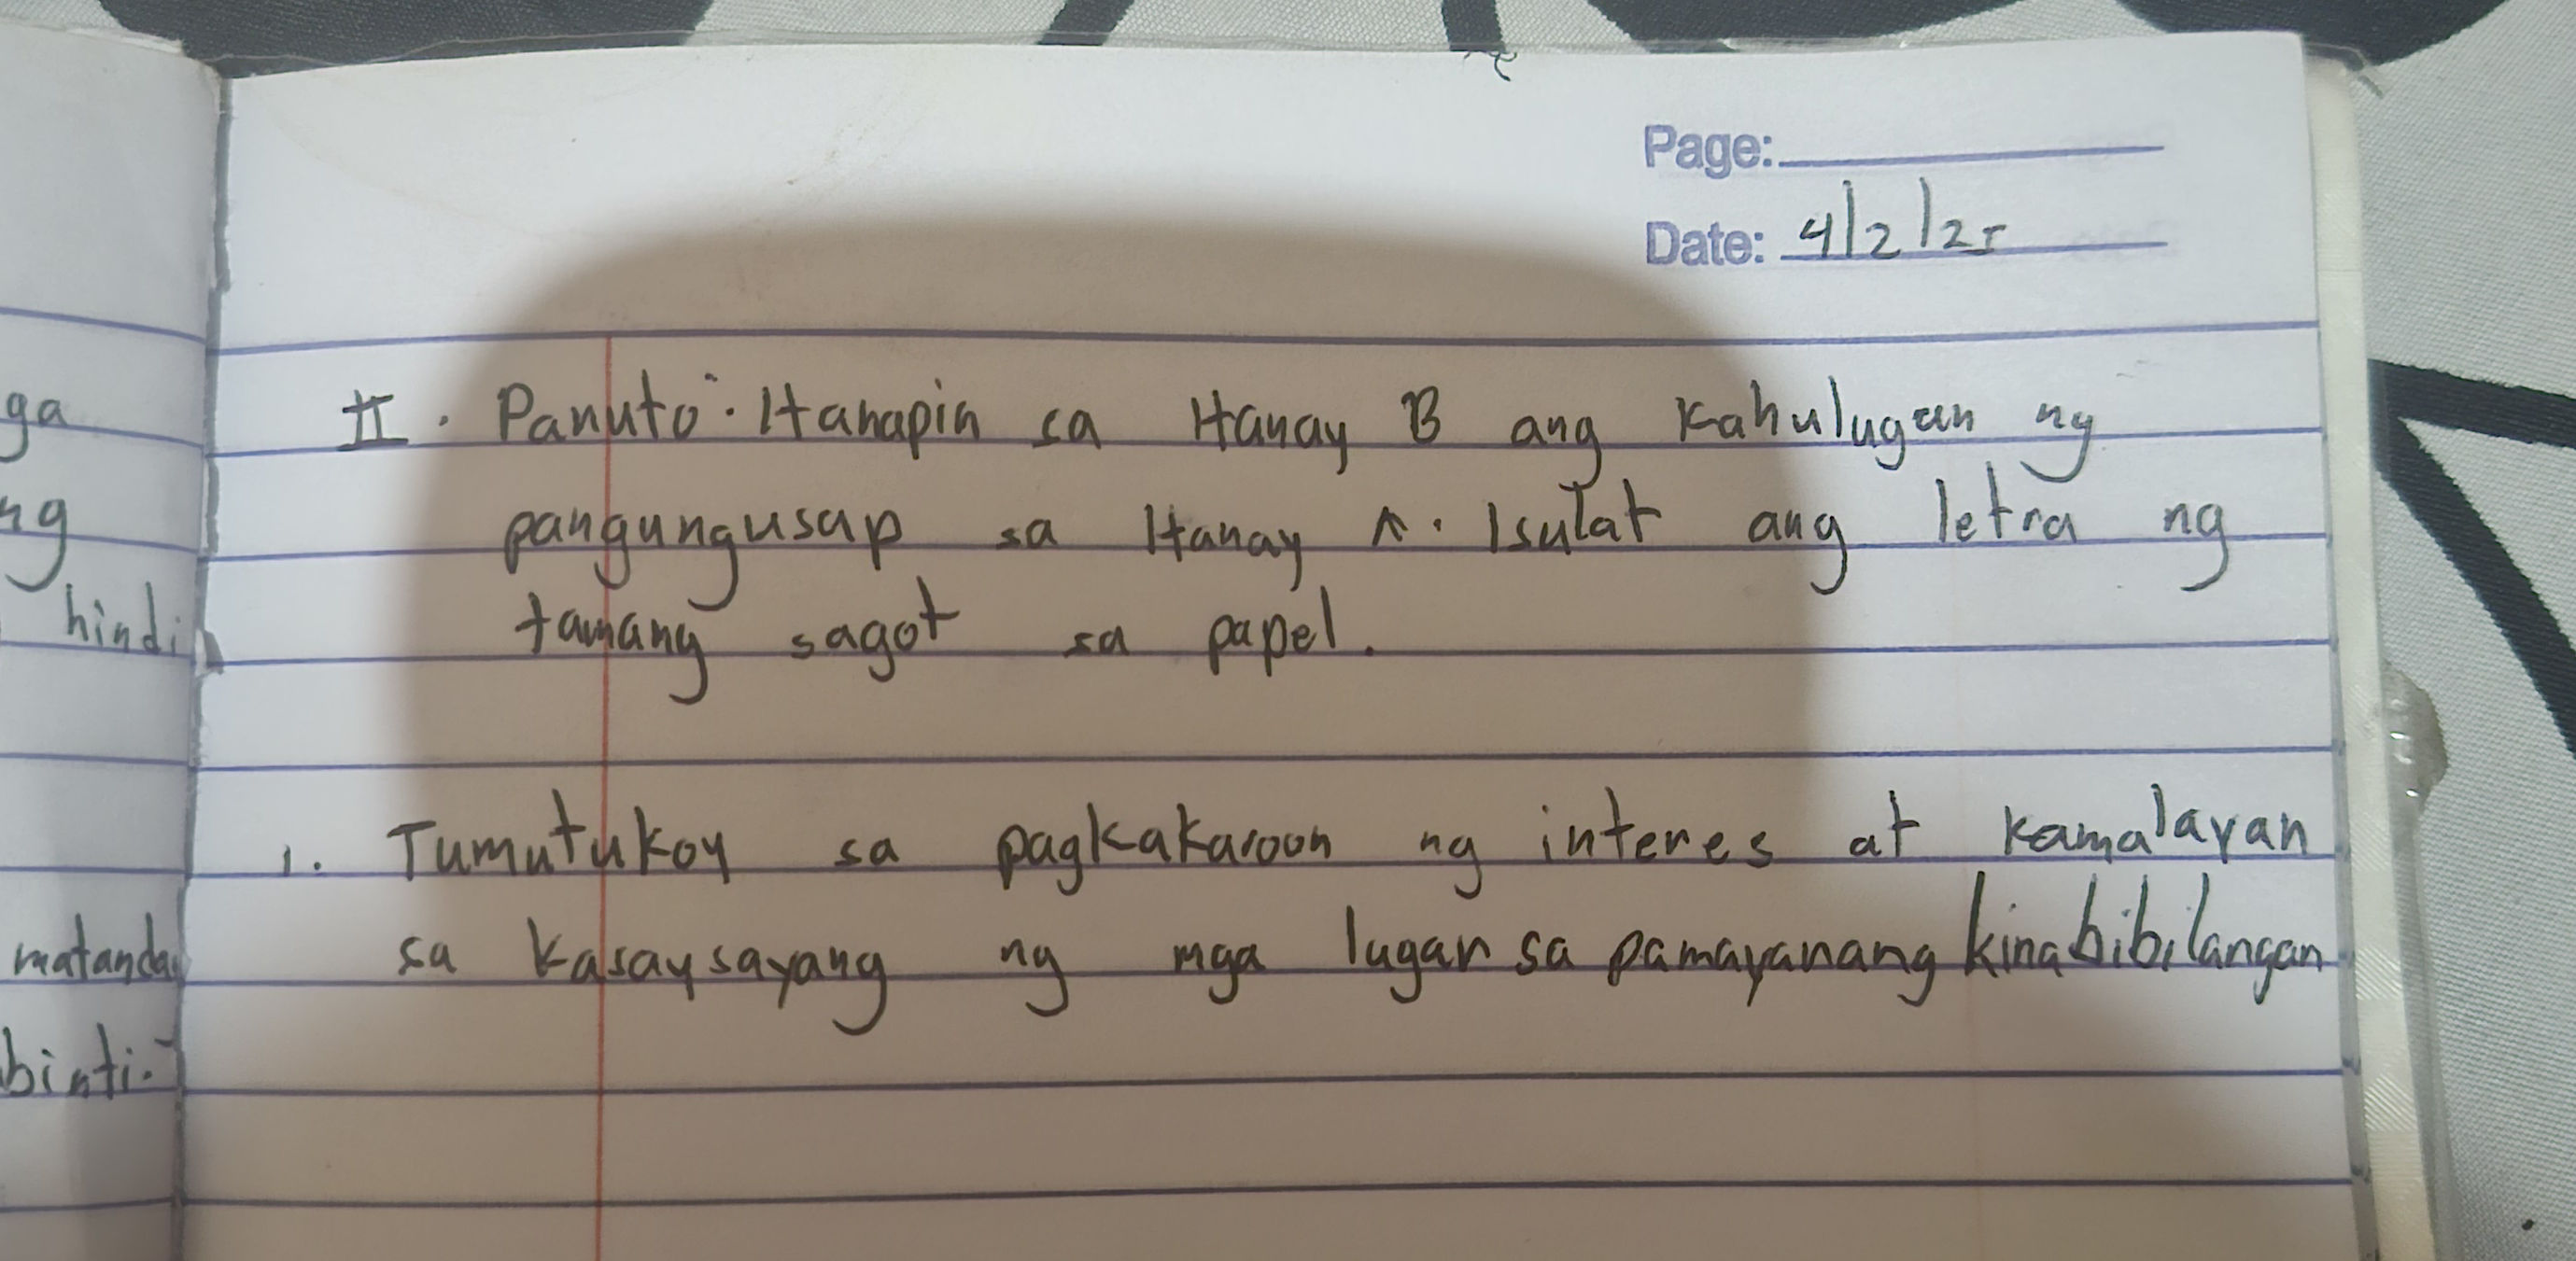 Page:
Date: 4/2/25
II. Panuto: Hanapin sa Hanay B ang kahulugan ng
pangungusap sa Hanay A. Isulat ang letra ng
tamang sagot sa papel.
1. Tumutukoy sa pagkakaroon ng interes at kamalayan
sa kasaysayang ng mga lugar sa pamayanang kinabibilangan
ga
ng
hindi
matanda
binti.